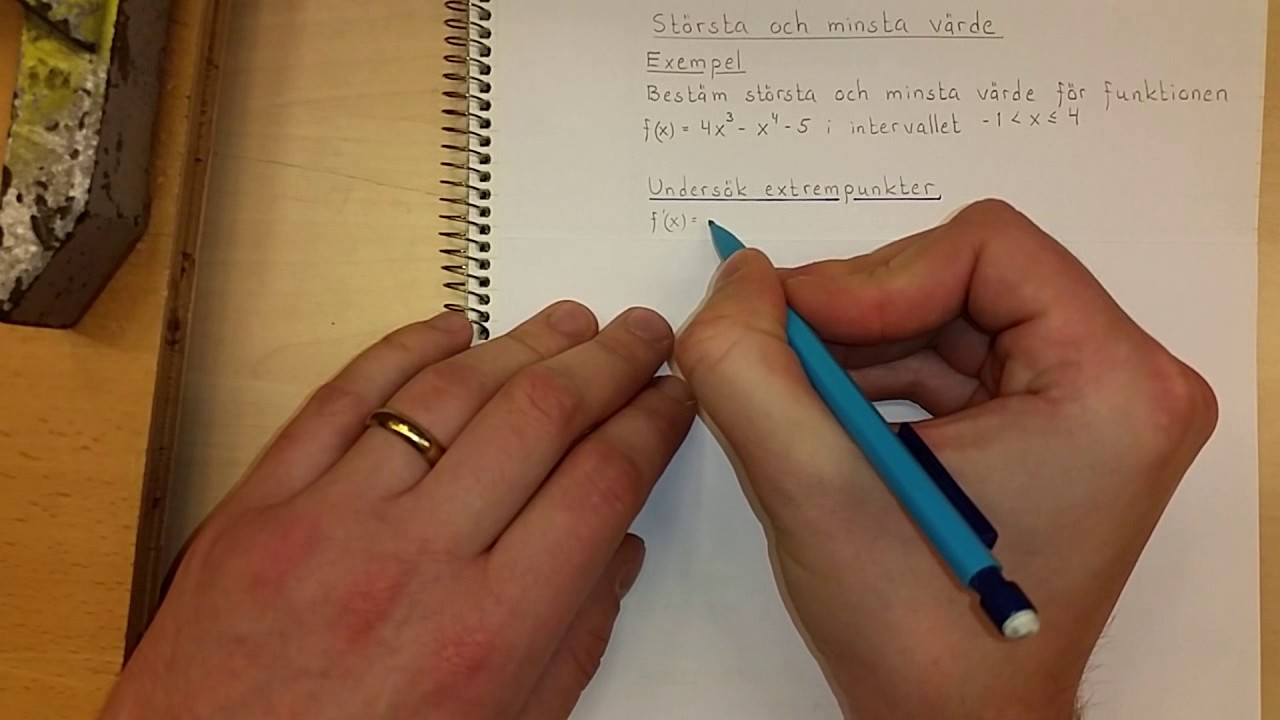 Största och minsta värde
Exempel
Bestäm största och minsta värde för funktionen
f(x) = 4x³ - x⁴ - 5 i intervallet -1 < x ≤ 4
Undersök extrempunkter
f'(x) =